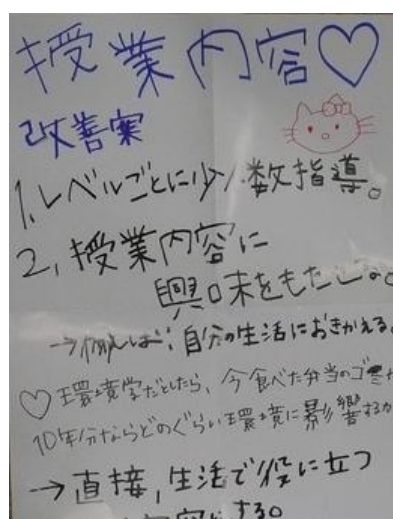 授業内容♡
改善案
1, レベルごとに少人数指導。
2, 授業内容に
興味をもたせる。
→例えば、自分の生活におきかえる。
♡環境学だとしたら、今食べた弁当のゴミが
10年分ならどのぐらい環境に影響するか
→直接, 生活で役に立つ
内容にする。